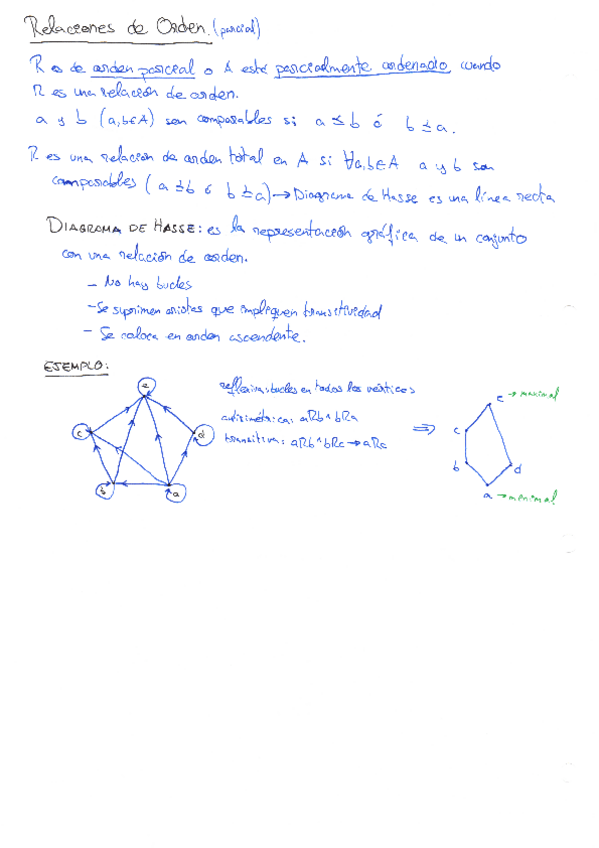 Relaciones de Orden. (parcial)
R es de orden parcial o A está parcialmente ordenado, cuando
R es una relación de orden.
a y b (a,b∈A) son comparables si a ≤ b ó b ≤ a.
R es una relación de orden total en A si ∀a,b∈A a y b son
comparables (a ≤ b ó b ≤ a) → Diagrama de Hasse es una línea recta
DIAGRAMA DE HASSE: es la representación gráfica de un conjunto
con una relación de orden.
- No hay bucles
- Se suprimen aristas que impliquen transitividad
- Se coloca en orden ascendente.
EJEMPLO:
e
c
d
b
a
reflexiva: bucles en todos los vértices
antisimétrica: aRb ^ bRa
transitiva: aRb ^ bRc → aRc
⇒
e → maximal
c
b
d
a → minimal